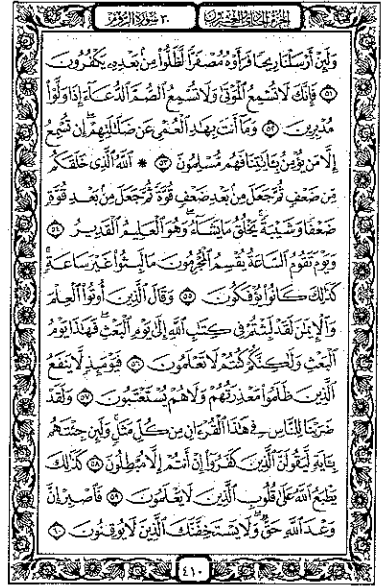 الجزء الحادي والعشرون ٣٠ سورة الروم
وَلَئِنْ أَرْسَلْنَا رِيحًا فَرَأَوْهُ مُصْفَرًّا لَّظَلُّوا۟ مِنۢ بَعْدِهِۦ يَكْفُرُونَ
﴿٥١﴾ فَإِنَّكَ لَا تُسْمِعُ ٱلْمَوْتَىٰ وَلَا تُسْمِعُ ٱلصُّمَّ ٱلدُّعَآءَ إِذَا وَلَّوْا۟
مُدْبِرِينَ ﴿٥٢﴾ وَمَآ أَنتَ بِهَٰدِ ٱلْعُمْىِ عَن ضَلَٰلَتِهِمْ ۖ إِن تُسْمِعُ
إِلَّا مَن يُؤْمِنُ بِـَٔايَٰتِنَا فَهُم مُّسْلِمُونَ ﴿٥٣﴾ ۞ ٱللَّهُ ٱلَّذِى خَلَقَكُم
مِّن ضَعْفٍ ثُمَّ جَعَلَ مِنۢ بَعْدِ ضَعْفٍ قُوَّةً ثُمَّ جَعَلَ مِنۢ بَعْدِ قُوَّةٍ
ضَعْفًا وَشَيْبَةً ۚ يَخْلُقُ مَا يَشَآءُ ۖ وَهُوَ ٱلْعَلِيمُ ٱلْقَدِيرُ ﴿٥٤﴾
وَيَوْمَ تَقُومُ ٱلسَّاعَةُ يُقْسِمُ ٱلْمُجْرِمُونَ مَا لَبِثُوا۟ غَيْرَ سَاعَةٍ ۚ
كَذَٰلِكَ كَانُوا۟ يُؤْفَكُونَ ﴿٥٥﴾ وَقَالَ ٱلَّذِينَ أُوتُوا۟ ٱلْعِلْمَ
وَٱلْإِيمَٰنَ لَقَدْ لَبِثْتُمْ فِى كِتَٰبِ ٱللَّهِ إِلَىٰ يَوْمِ ٱلْبَعْثِ ۖ فَهَٰذَا يَوْمُ
ٱلْبَعْثِ وَلَٰكِنَّكُمْ كُنتُمْ لَا تَعْلَمُونَ ﴿٥٦﴾ فَيَوْمَئِذٍ لَّا يَنفَعُ
ٱلَّذِينَ ظَلَمُوا۟ مَعْذِرَتُهُمْ وَلَا هُمْ يُسْتَعْتَبُونَ ﴿٥٧﴾ وَلَقَدْ
ضَرَبْنَا لِلنَّاسِ فِى هَٰذَا ٱلْقُرْءَانِ مِن كُلِّ مَثَلٍ ۚ وَلَئِن جِئْتَهُم
بِـَٔايَةٍ لَّيَقُولَنَّ ٱلَّذِينَ كَفَرُوٓا۟ إِنْ أَنتُمْ إِلَّا مُبْطِلُونَ ﴿٥٨﴾ كَذَٰلِكَ
يَطْبَعُ ٱللَّهُ عَلَىٰ قُلُوبِ ٱلَّذِينَ لَا يَعْلَمُونَ ﴿٥٩﴾ فَٱصْبِرْ إِنَّ
وَعْدَ ٱللَّهِ حَقٌّ ۖ وَلَا يَسْتَخِفَّنَّكَ ٱلَّذِينَ لَا يُوقِنُونَ ﴿٦٠﴾
٤١٠